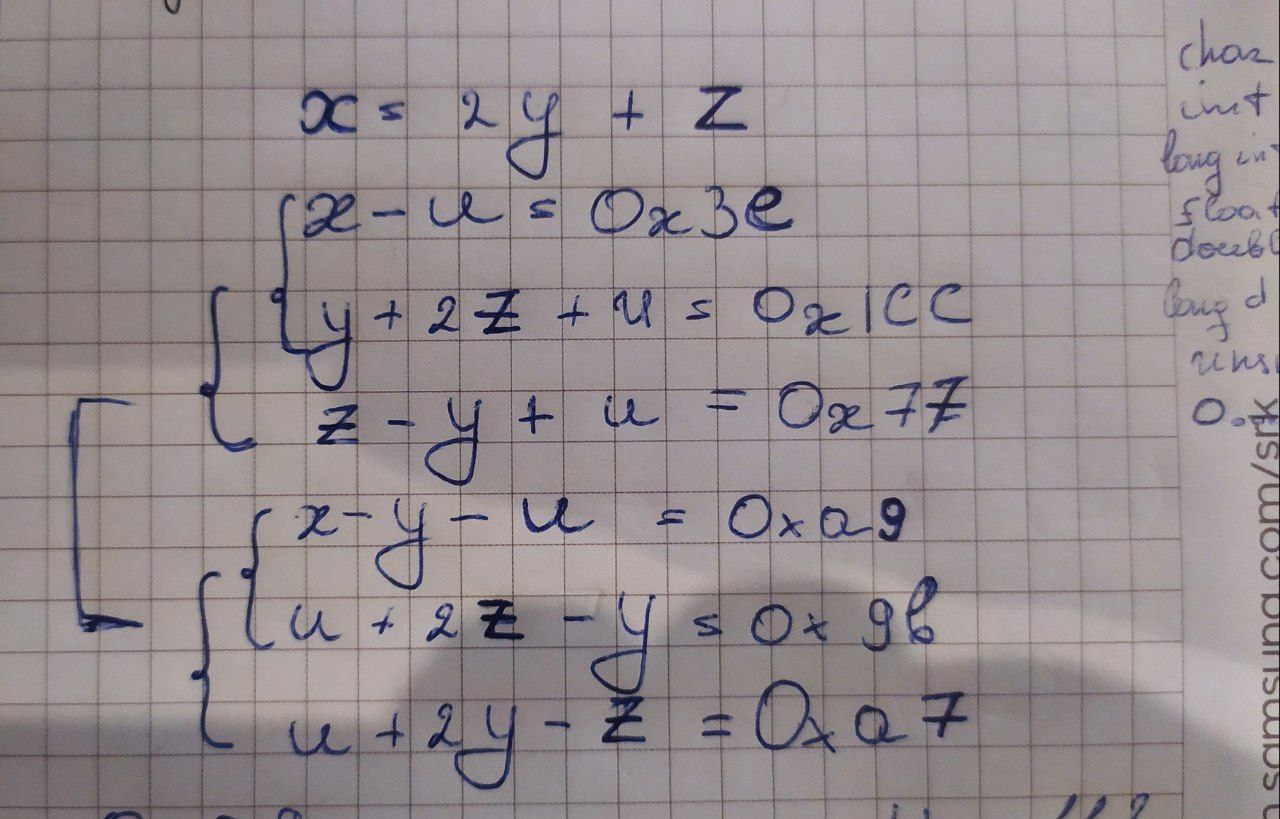 x = 2y + z
x - u = 0x3e
y + 2z + u = 0x1CC
z - y + u = 0x77
x - y - u = 0xa9
u + 2z - y = 0x9b
u + 2y - z = 0xa7
char
int
long int
float
doubl
long d
unsi
0.
n.samsung.com/srk